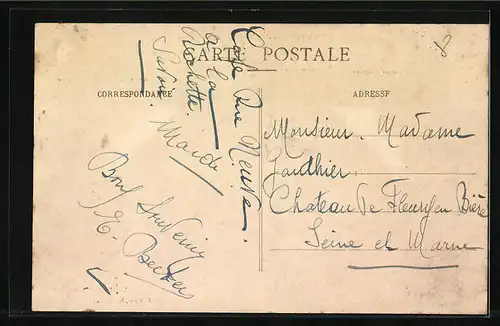 CARTE POSTALE
CORRESPONDANCE
ADRESSE
Café Rue Neuve.
à la
Rochette.
Savoie.
Mardi
Bons Souvenirs
E. Becker
Monsieur. Madame
Gauthier.
Chateau de Fleury en Bière
Seine et Marne